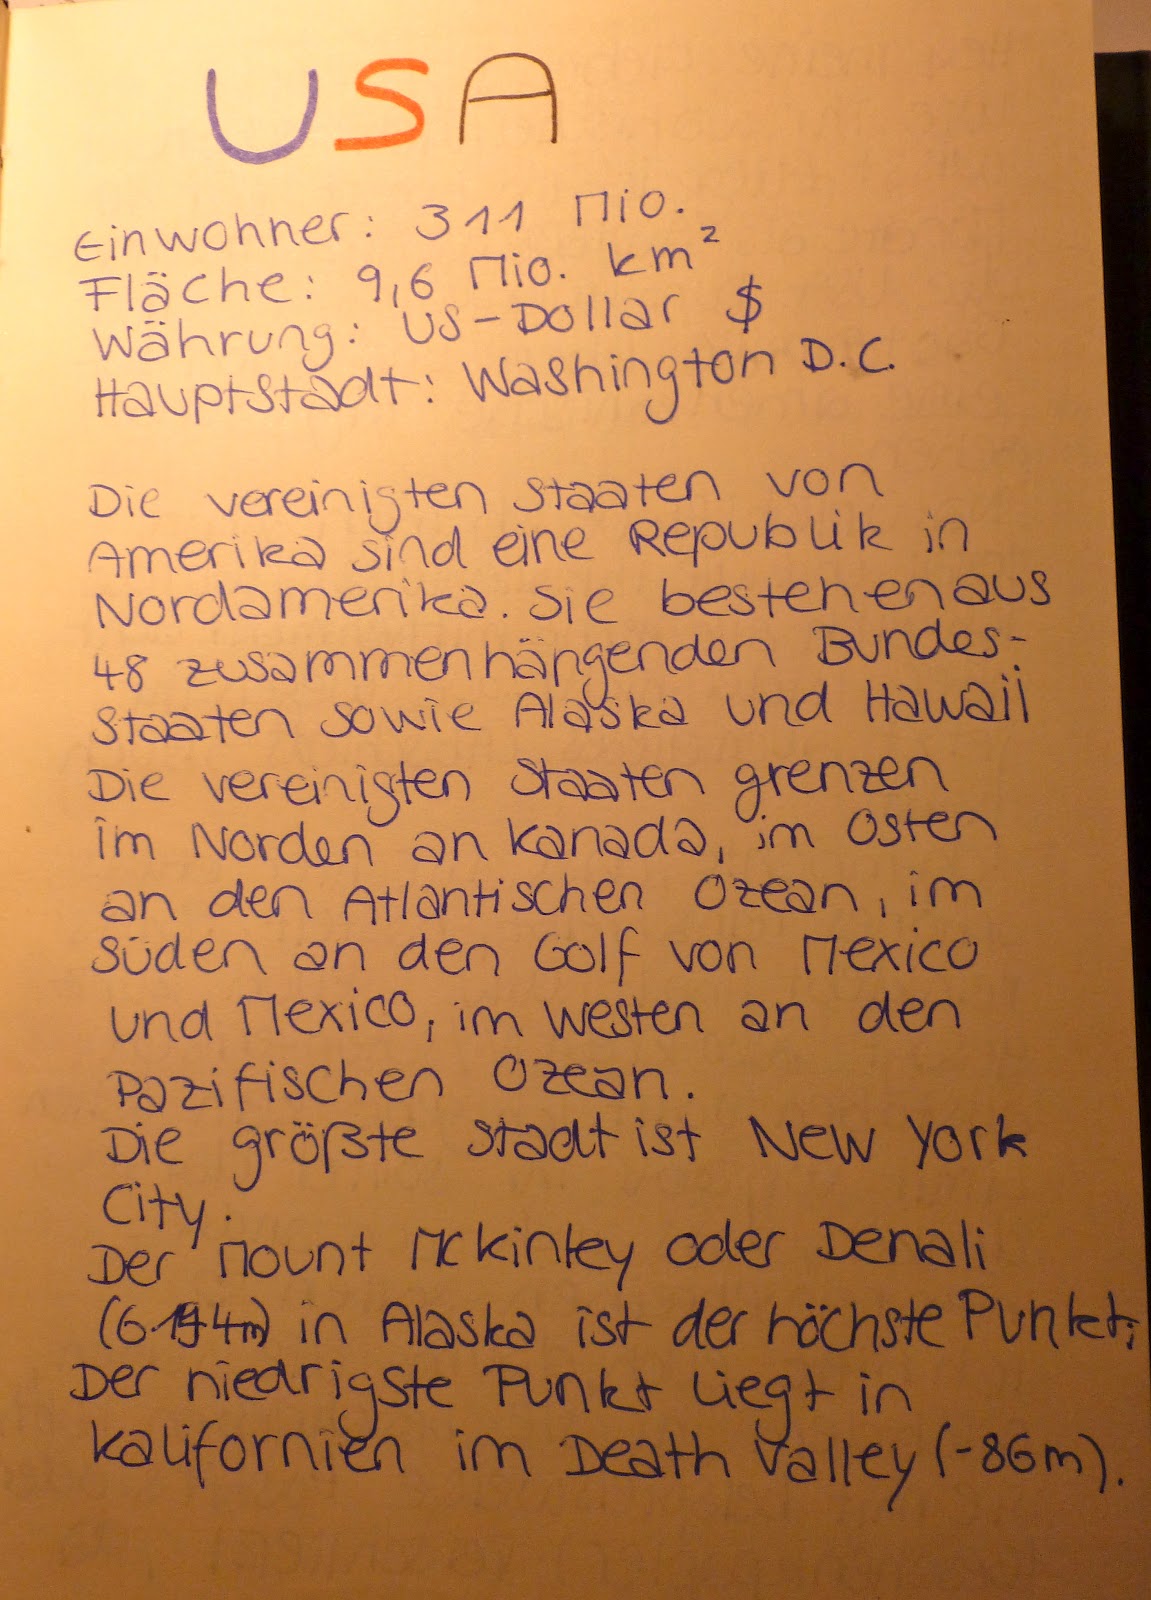 USA
Einwohner: 311 Mio.
Fläche: 9,6 Mio. km²
Währung: US-Dollar $
Hauptstadt: Washington D.C.
Die vereinigten Staaten von
Amerika sind eine Republik in
Nordamerika. Sie bestehen aus
48 zusammenhängenden Bundes-
staaten sowie Alaska und Hawaii
Die vereinigten Staaten grenzen
im Norden an Kanada, im Osten
an den Atlantischen Ozean, im
Süden an den Golf von Mexico
und Mexico, im Westen an den
Pazifischen Ozean.
Die größte Stadt ist New York
City.
Der Mount McKinley oder Denali
(6.194m) in Alaska ist der höchste Punkt;
Der niedrigste Punkt liegt in
Kalifornien im Death Valley (-86m).